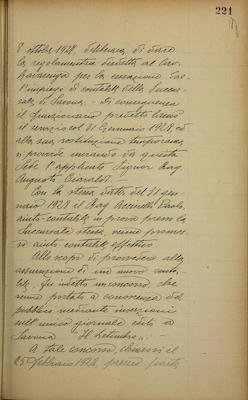 221
8 ottobre 1928, deliberava di dare
la regolamentare disdetta al
per la cessazione dal-
l'impiego di contabile della Succur-
sale di Savona. - Di conseguenza
il funzionario predetto lasciò
il servizio col 31 Gennaio 1928, ed
alla sua sostituzione temporanea
si provvide inviando da questa
Sede l'applicato Signor Rag.
Augusto
Con la stessa data del 31 gen-
naio 1928 il Rag. Paolo,
aiuto-contabile in prova presso la
Succursale stessa, venne promos-
so aiuto-contabile effettivo.
Allo scopo di provvedere alla
assunzione di un nuovo conta-
bile, fu indetto un concorso, che
venne portato a conoscenza del
pubblico mediante inserzione
sull'unico giornale edito a
Savona "Il Letimbro".
A tale concorso, chiusosi il
25 febbraio 1928, presero parte